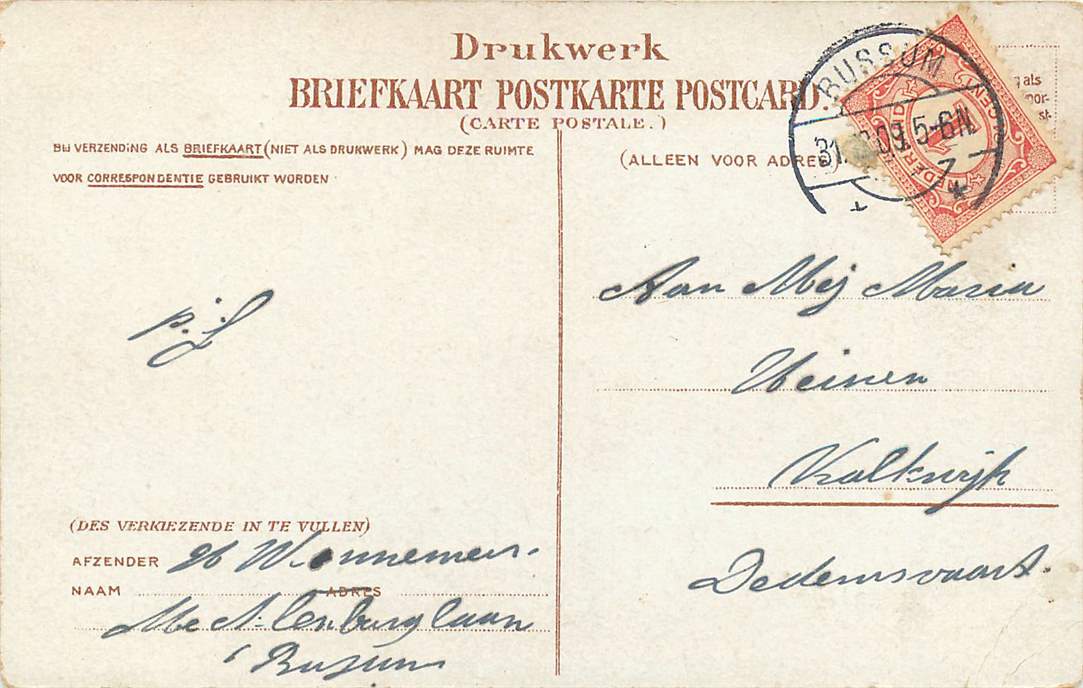 Drukwerk
BRIEFKAART POSTKARTE POSTCARD.
(CARTE POSTALE.)
BIJ VERZENDING ALS BRIEFKAART (NIET ALS DRUKWERK) MAG DEZE RUIMTE
VOOR CORRESPONDENTIE GEBRUIKT WORDEN
(ALLEEN VOOR ADRES)
BUSSUM
31. 09. 5-6N.
als
Aan Mej Maria
Weinen
Kalkwijk
Dedemsvaart.
p. f.
(DES VERKIEZENDE IN TE VULLEN)
AFZENDER Wonnemers.
NAAM ADRES
laan
Bussum